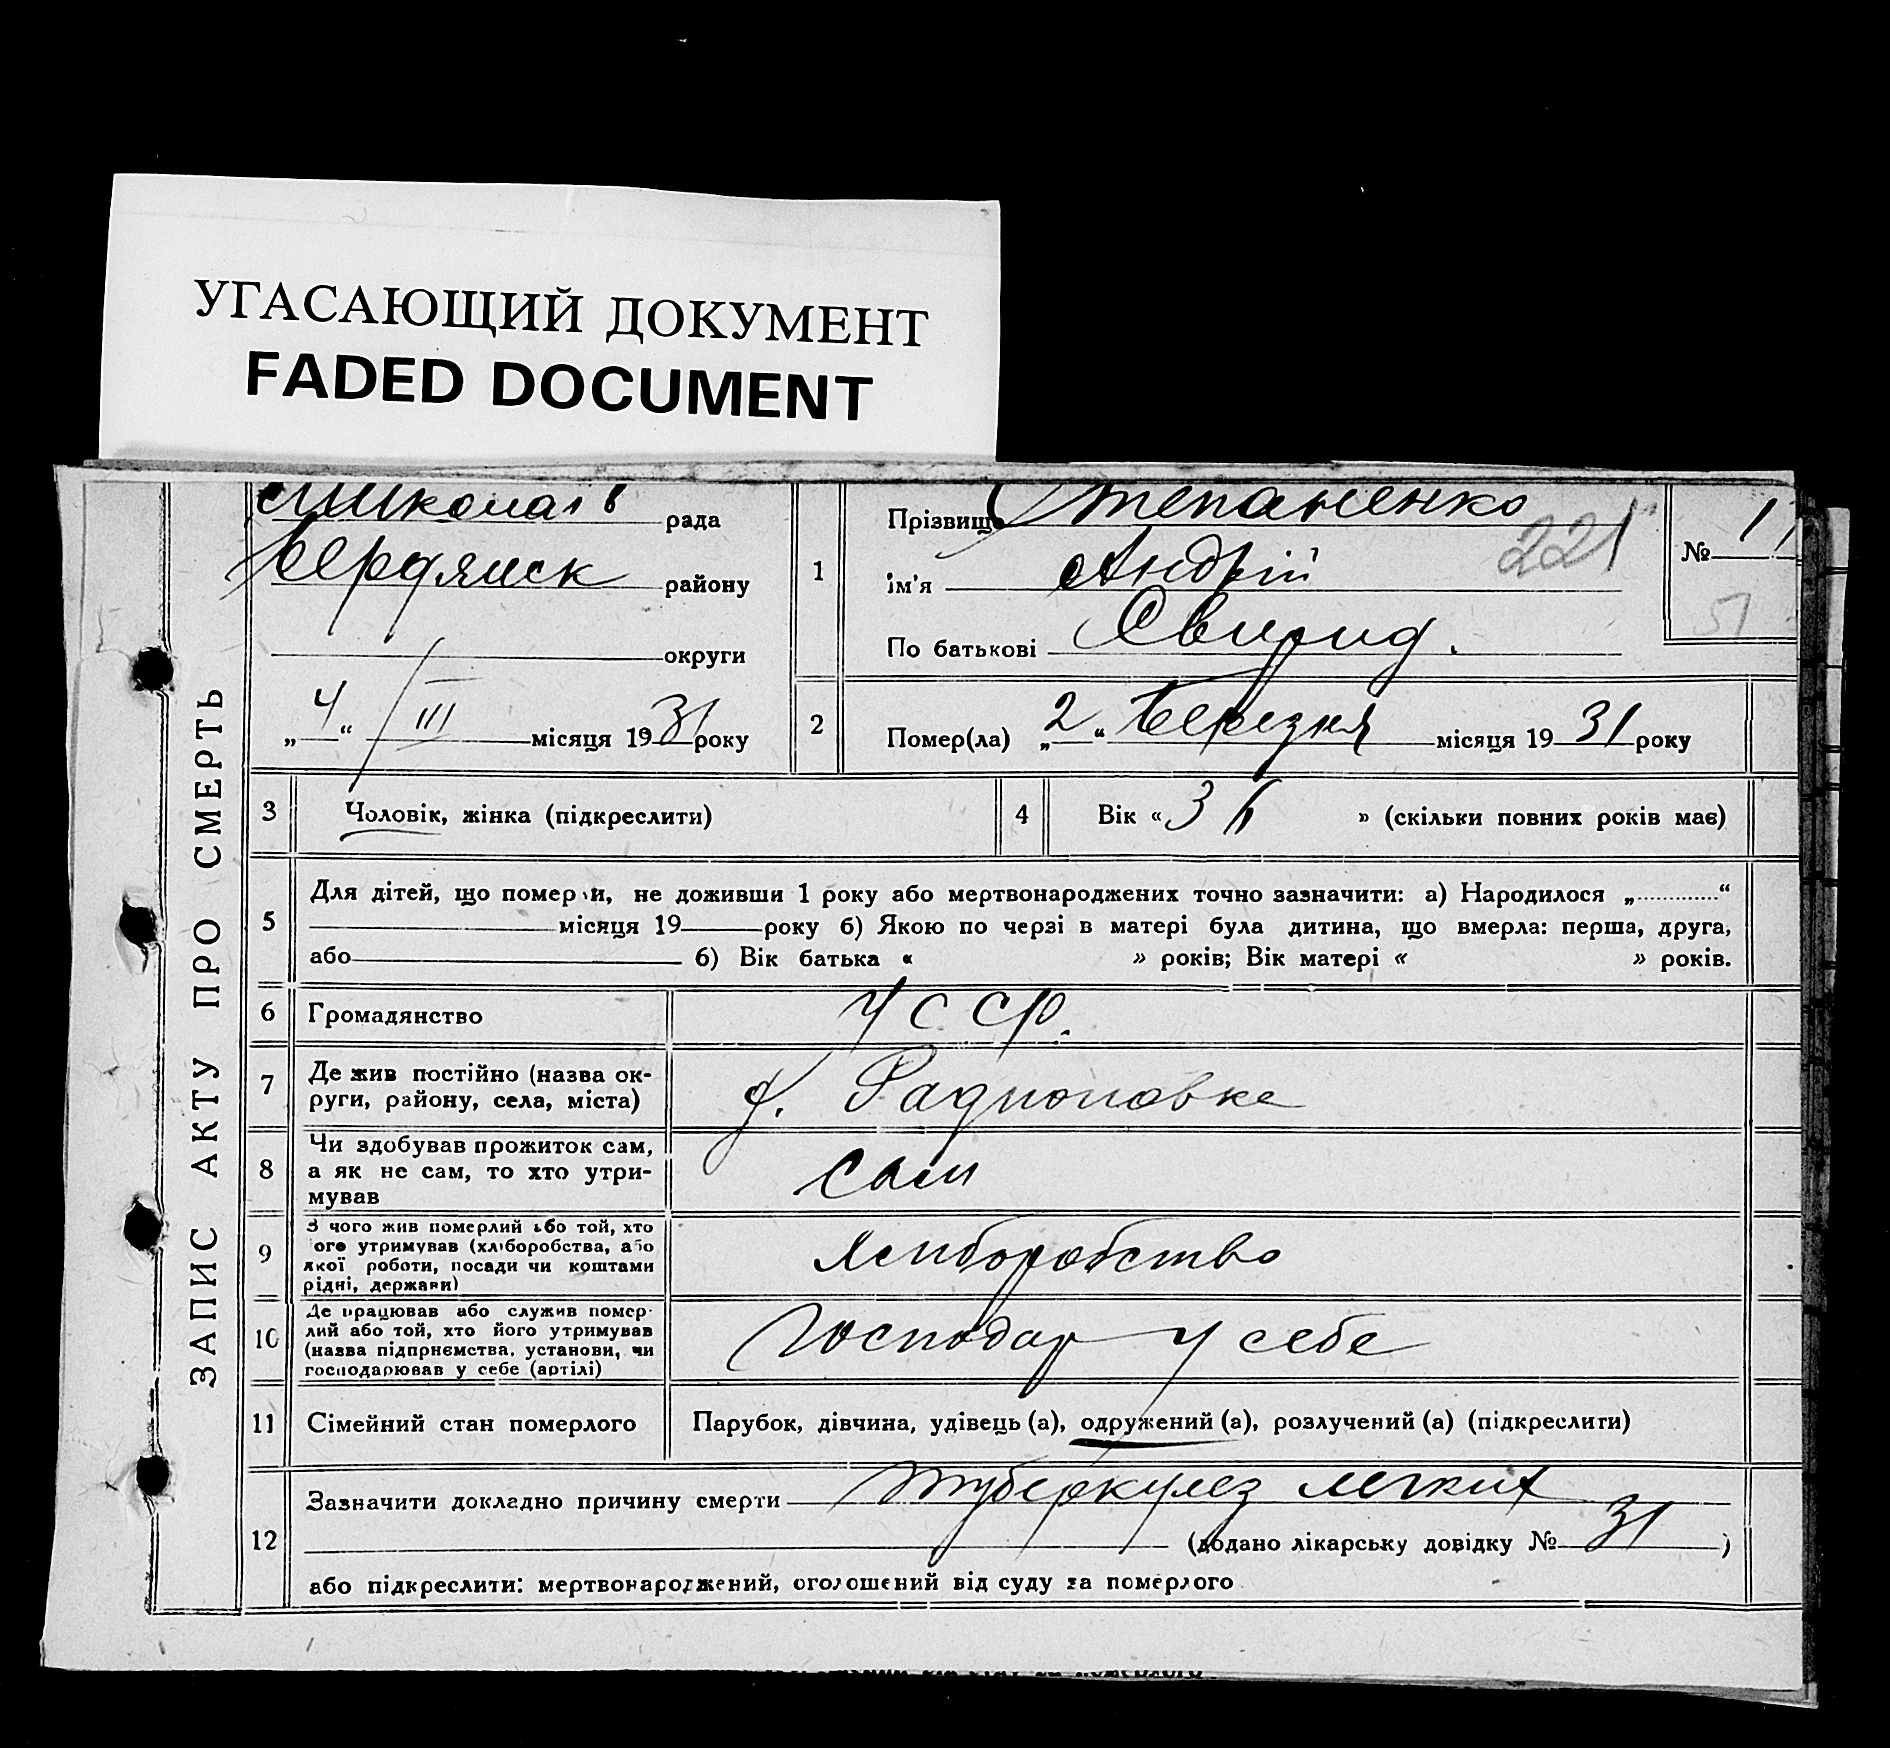 УГАСАЮЩИЙ ДОКУМЕНТ
FADED DOCUMENT
ЗАПИС АКТУ ПРО СМЕРТЬ
Миколаїв рада
Бердянск району
округи
„4“ III місяця 1931 року
1
Прізвище Степаненко
ім'я Андрій
По батькові Свирид.
221
№ 11
51
2
Помер(ла) „2“ Березня місяця 1931 року
3 Чоловік, жінка (підкреслити)
4 Вік «36» (скільки повних років має)
5 Для дітей, що померли, не доживши 1 року або мертвонароджених точно зазначити: а) Народилося „............“
місяця 19 року б) Якою по черзі в матері була дитина, що вмерла: перша, друга,
або б) Вік батька « » років; Вік матері « » років.
6 Громадянство УССР.
7 Де жив постійно (назва ок-
руги, району, села, міста)
Радионовке
8 Чи здобував прожиток сам,
а як не сам, то хто утри-
мував
Сам
9 З чого жив померлий або той, хто
ого утримував (хліборобства, або
якої роботи, посади чи коштами
рідні, держави)
Хлиборобство
10 Де працював або служив помер-
лий або той, хто його утримував
(назва підприємства, установи, чи
господарював у себе (артілі)
Господар у себе
11 Сімейний стан померлого Парубок, дівчина, удівець (а), одружений (а), розлучений (а) (підкреслити)
12 Зазначити докладно причину смерти туберкулез легких
(додано лікарську довідку № 31)
або підкреслити: мертвонароджений, оголошений від суду за померлого